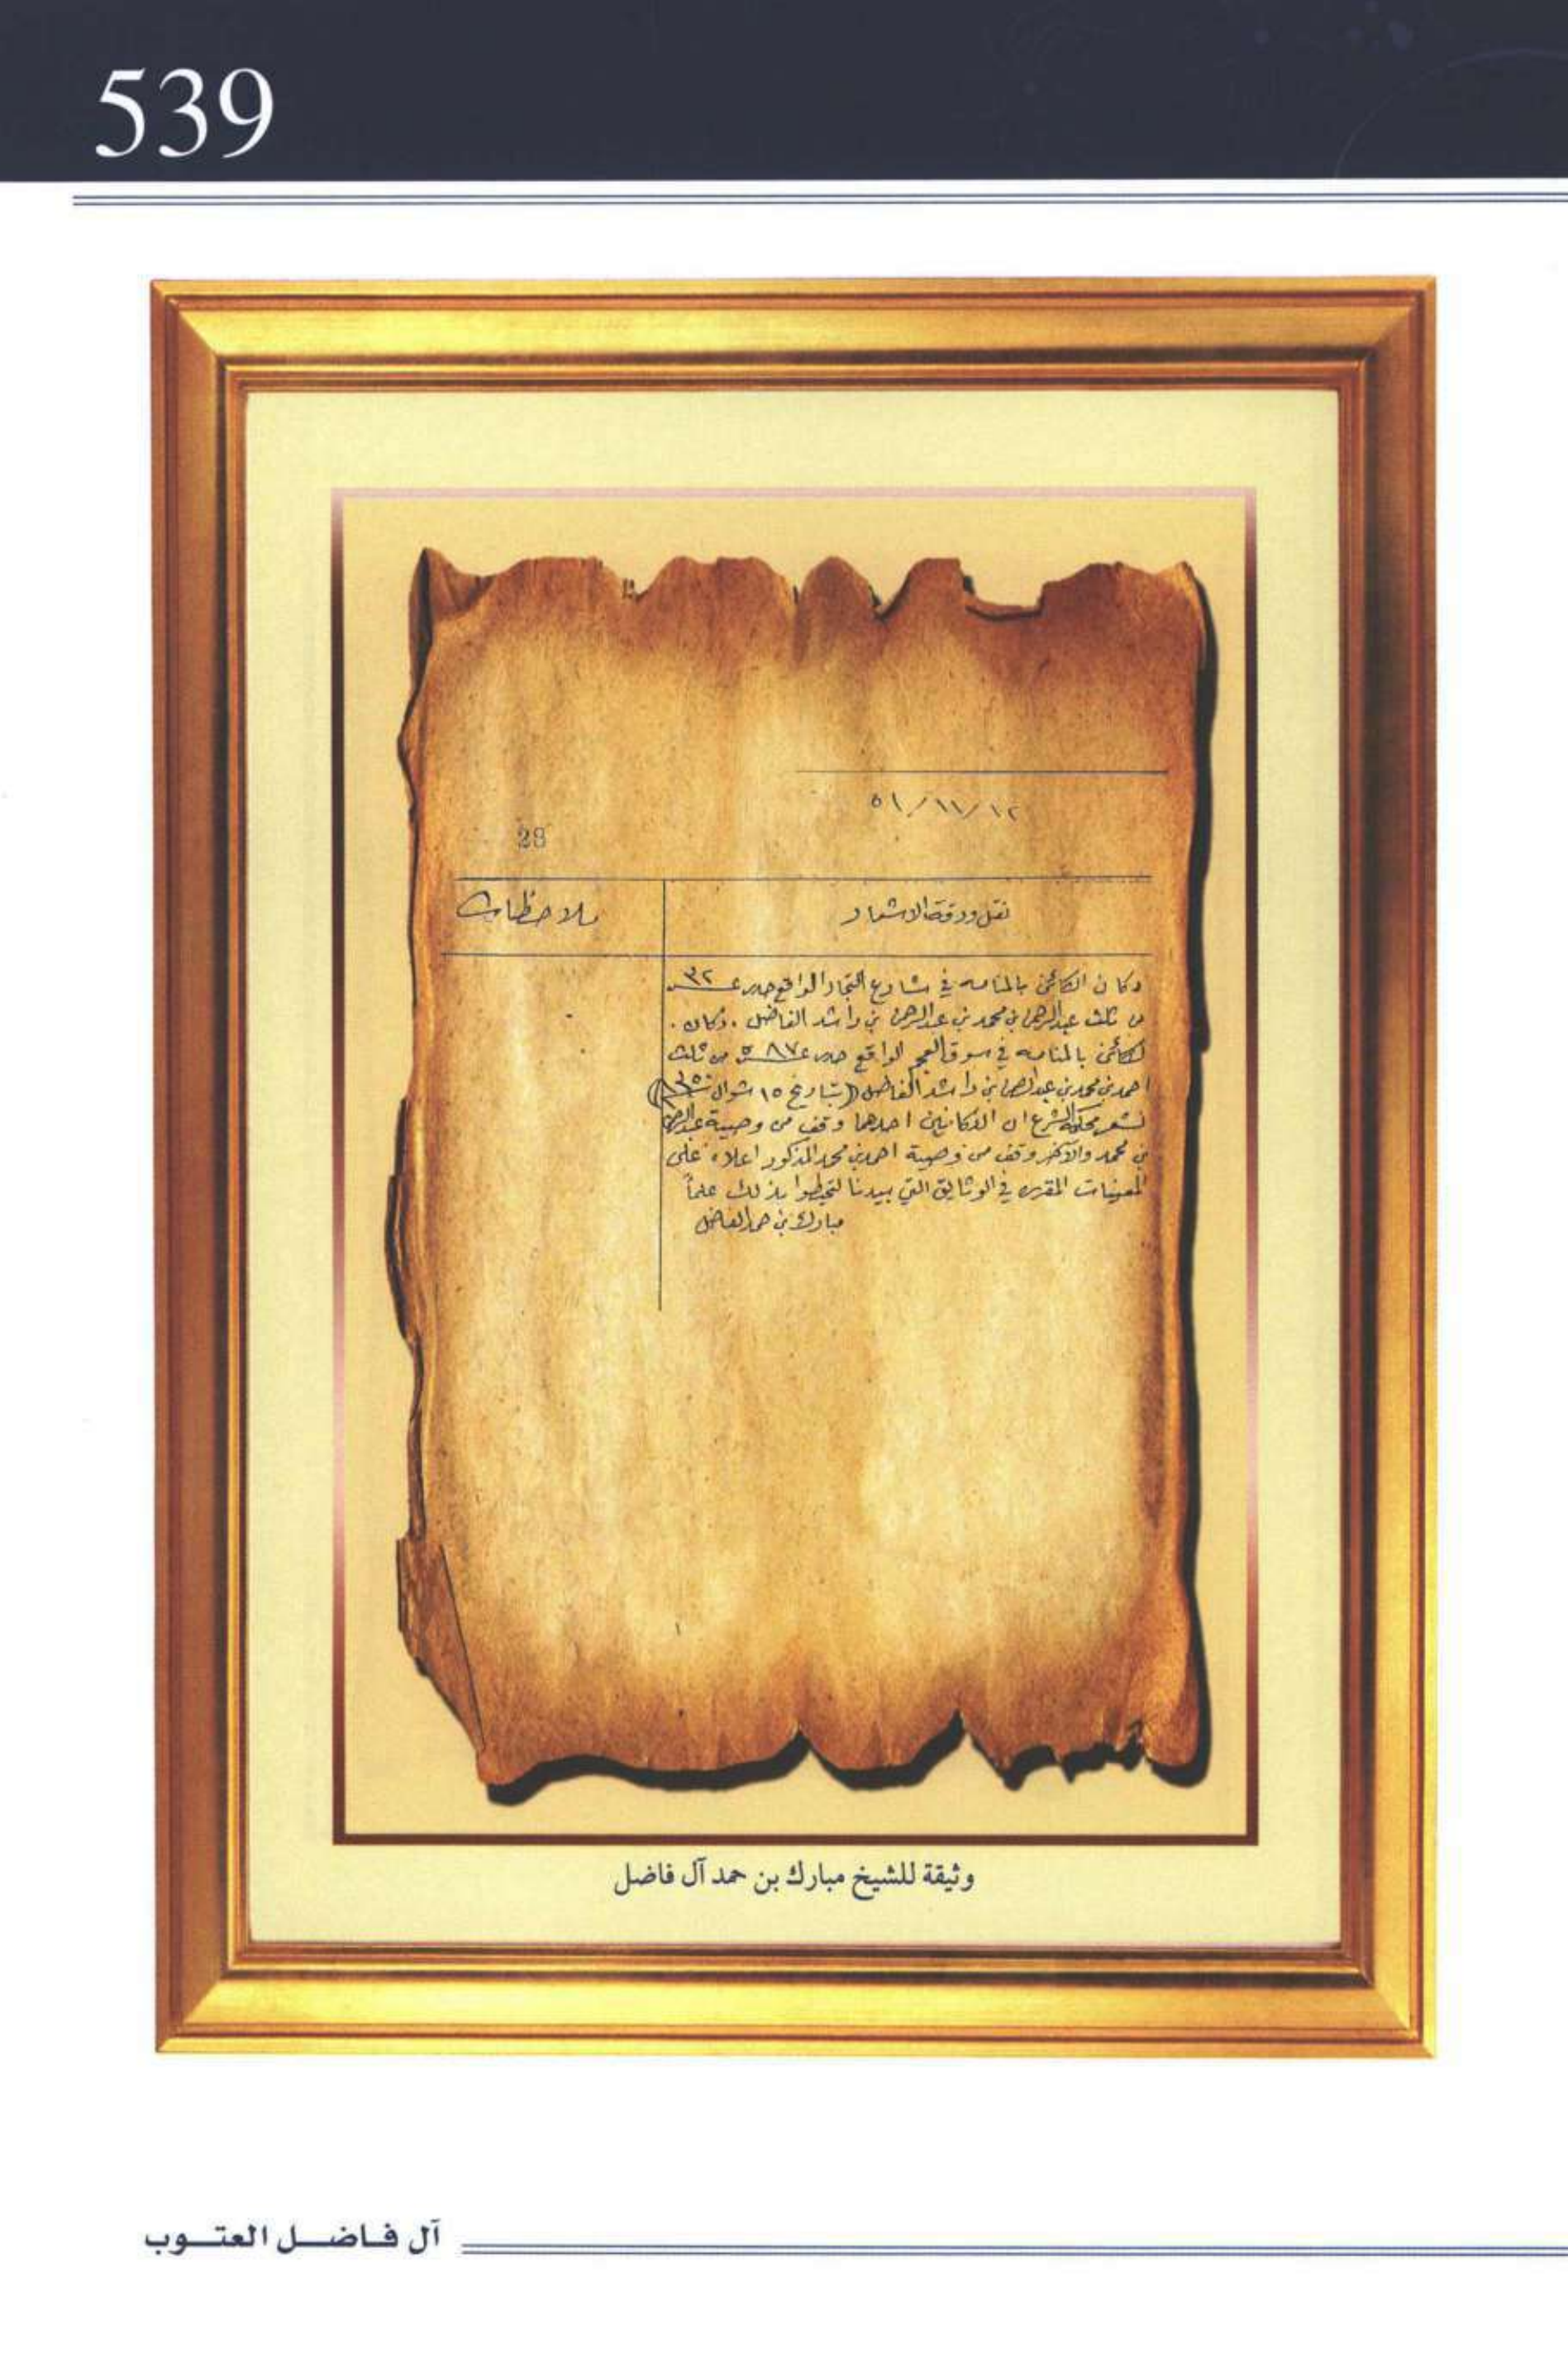 539
٥١/١١/١٢
28
نقل ورقة الاشعار
ملاحظات
دكان الكائن بالمنامه في شارع التجار الواقع ٣٢
من ثلث عبدالرحمن بن محمد بن عبدالرحمن بن راشد الفاضل . دكان .
الكائن بالمنامه في سوق العجم الواقع من ثلث
احمد بن محمد بن عبدالرحمن بن راشد الفاضل (بتاريخ ١٥ شوال
لشعر محكمة الشرع ان الدكانين احدهما وقف من وصية عبدالرحمن
بن محمد والآخر وقف من وصية احمد بن محمد المذكور اعلاه على
المعينات المقرره في الوثايق التي بيدنا لتحيطوا بذلك علماً
مبارك بن حمد الفاضل
وثيقة للشيخ مبارك بن حمد آل فاضل
آل فاضل العتوب